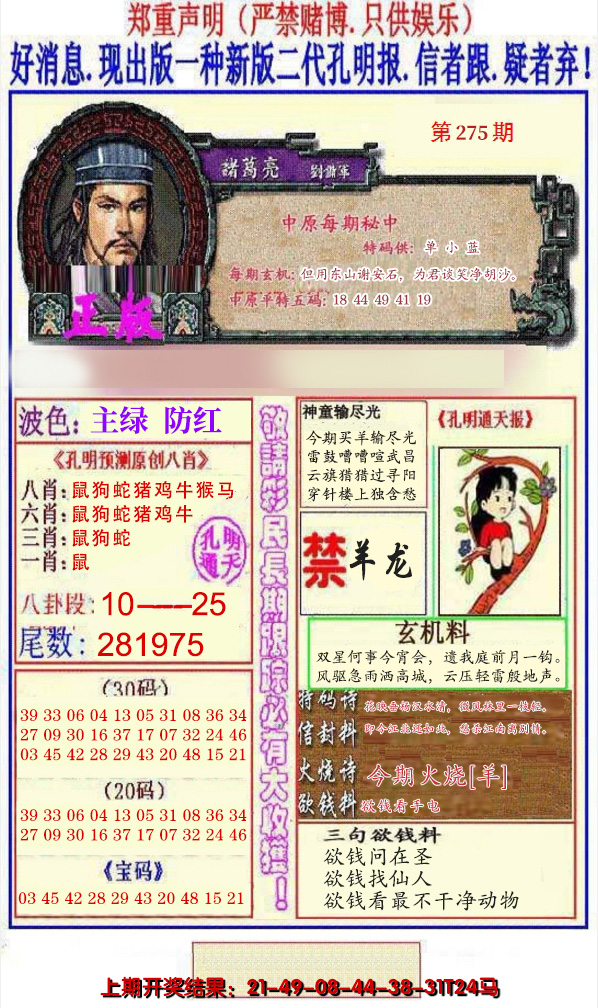 郑重声明（严禁赌博.只供娱乐）
好消息.现出版一种新版二代孔明报.信者跟.疑者弃！
第275期
諸葛亮 劉備軍
中原每期秘中
特码供：单小蓝
每期玄机：但用东山谢安石，为君谈笑净胡沙。
中原平特五码：18 44 49 41 19
正版
波色：主绿 防红
《孔明预测原创八肖》
八肖：鼠狗蛇猪鸡牛猴马
六肖：鼠狗蛇猪鸡牛
三肖：鼠狗蛇
一肖：鼠
孔明
通天
八卦段：10——25
尾数：281975
敬請彩民長期跟踪必有大收獲！
神童输尽光
今期买羊输尽光
雷鼓嘈嘈喧武昌
云旗猎猎过寻阳
穿针楼上独含愁
《孔明通天报》
禁羊龙
玄机料
双星何事今宵会，遣我庭前月一钩。
风驱急雨洒高城，云压轻雷殷地声。
（30码）
39 33 06 04 13 05 31 08 36 34
27 09 30 16 37 17 07 32 24 46
03 45 42 28 29 43 20 48 15 21
（20码）
39 33 06 04 13 05 31 08 36 34
27 09 30 16 37 17 07 32 24 46
《宝码》
03 45 42 28 29 43 20 48 15 21
特码诗
信封料
即今江北还如北，愁杀江南离别情。
火烧诗 今期火烧[羊]
欲钱料 欲钱看手电
三句欲钱料
欲钱问在圣
欲钱找仙人
欲钱看最不干净动物
上期开奖结果：21-49-08-44-38-31T24马